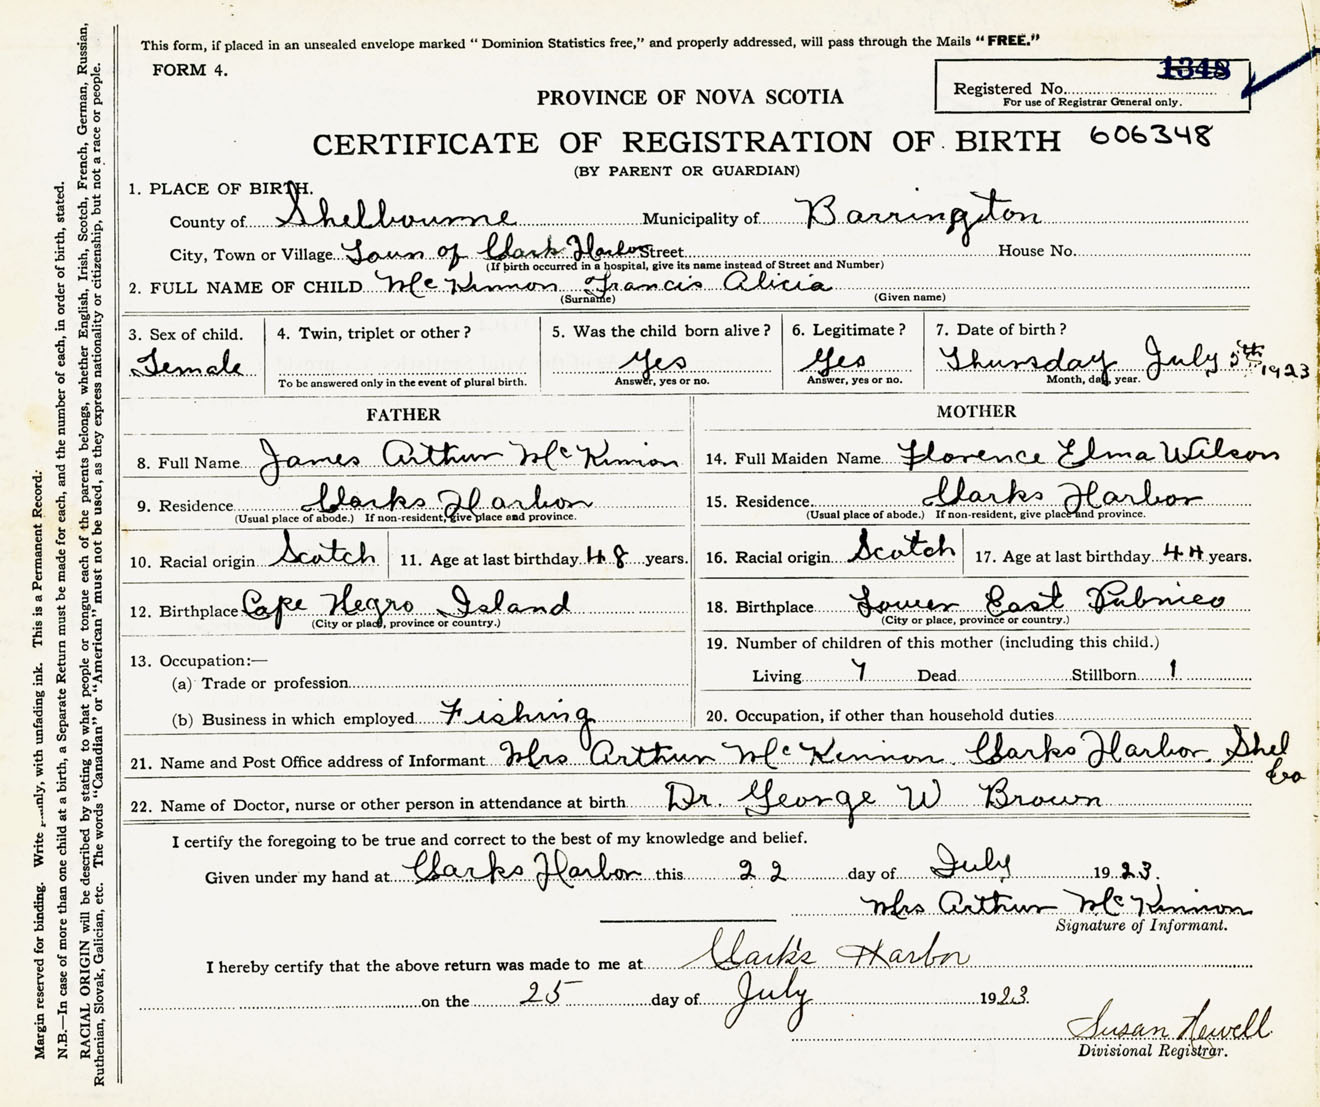 This form, if placed in an unsealed envelope marked "Dominion Statistics free," and properly addressed, will pass through the Mails "FREE."
FORM 4.
1348
Registered No.
For use of Registrar General only.
PROVINCE OF NOVA SCOTIA
CERTIFICATE OF REGISTRATION OF BIRTH 606348
(BY PARENT OR GUARDIAN)
1. PLACE OF BIRTH.
County of Shelbourne Municipality of Barrington
City, Town or Village Town of Clark Harbor Street House No.
(If birth occurred in a hospital, give its name instead of Street and Number)
2. FULL NAME OF CHILD McKinnon Francis Alicia
(Surname) (Given name)
3. Sex of child. Female
4. Twin, triplet or other?
To be answered only in the event of plural birth.
5. Was the child born alive? Yes
Answer, yes or no.
6. Legitimate? Yes
Answer, yes or no.
7. Date of birth? Thursday July 5th 1923
Month, day, year.
FATHER
8. Full Name James Arthur McKinnon
9. Residence Clarks Harbor
(Usual place of abode.) If non-resident, give place and province.
10. Racial origin Scotch 11. Age at last birthday 48 years.
12. Birthplace Cape Negro Island
(City or place, province or country.)
13. Occupation:—
(a) Trade or profession
(b) Business in which employed Fishing
MOTHER
14. Full Maiden Name Florence Elma Wilson
15. Residence Clarks Harbor
(Usual place of abode.) If non-resident, give place and province.
16. Racial origin Scotch 17. Age at last birthday 44 years.
18. Birthplace Lower East Pubnico
(City or place, province or country.)
19. Number of children of this mother (including this child.)
Living 7 Dead Stillborn 1
20. Occupation, if other than household duties
21. Name and Post Office address of Informant Mrs Arthur McKinnon. Clarks Harbor. Shel Co
22. Name of Doctor, nurse or other person in attendance at birth Dr. George W Brown
I certify the foregoing to be true and correct to the best of my knowledge and belief.
Given under my hand at Clarks Harbor this 22 day of July 1923.
Mrs Arthur McKinnon
Signature of Informant.
I hereby certify that the above return was made to me at Clark's Harbor
on the 25 day of July 1923.
Susan Newell
Divisional Registrar.
Margin reserved for binding. Write with unfading ink. This is a Permanent Record.
N.B.—In case of more than one child at a birth, a Separate Return must be made for each, and the number of each, in order of birth, stated.
RACIAL ORIGIN will be described by stating to what people or tongue each of the parents belongs, whether English, Irish, Scotch, French, German, Russian,
Ruthenian, Slovak, Galician, etc. The words "Canadian" or "American" must not be used, as they express nationality or citizenship, but not a race or people.